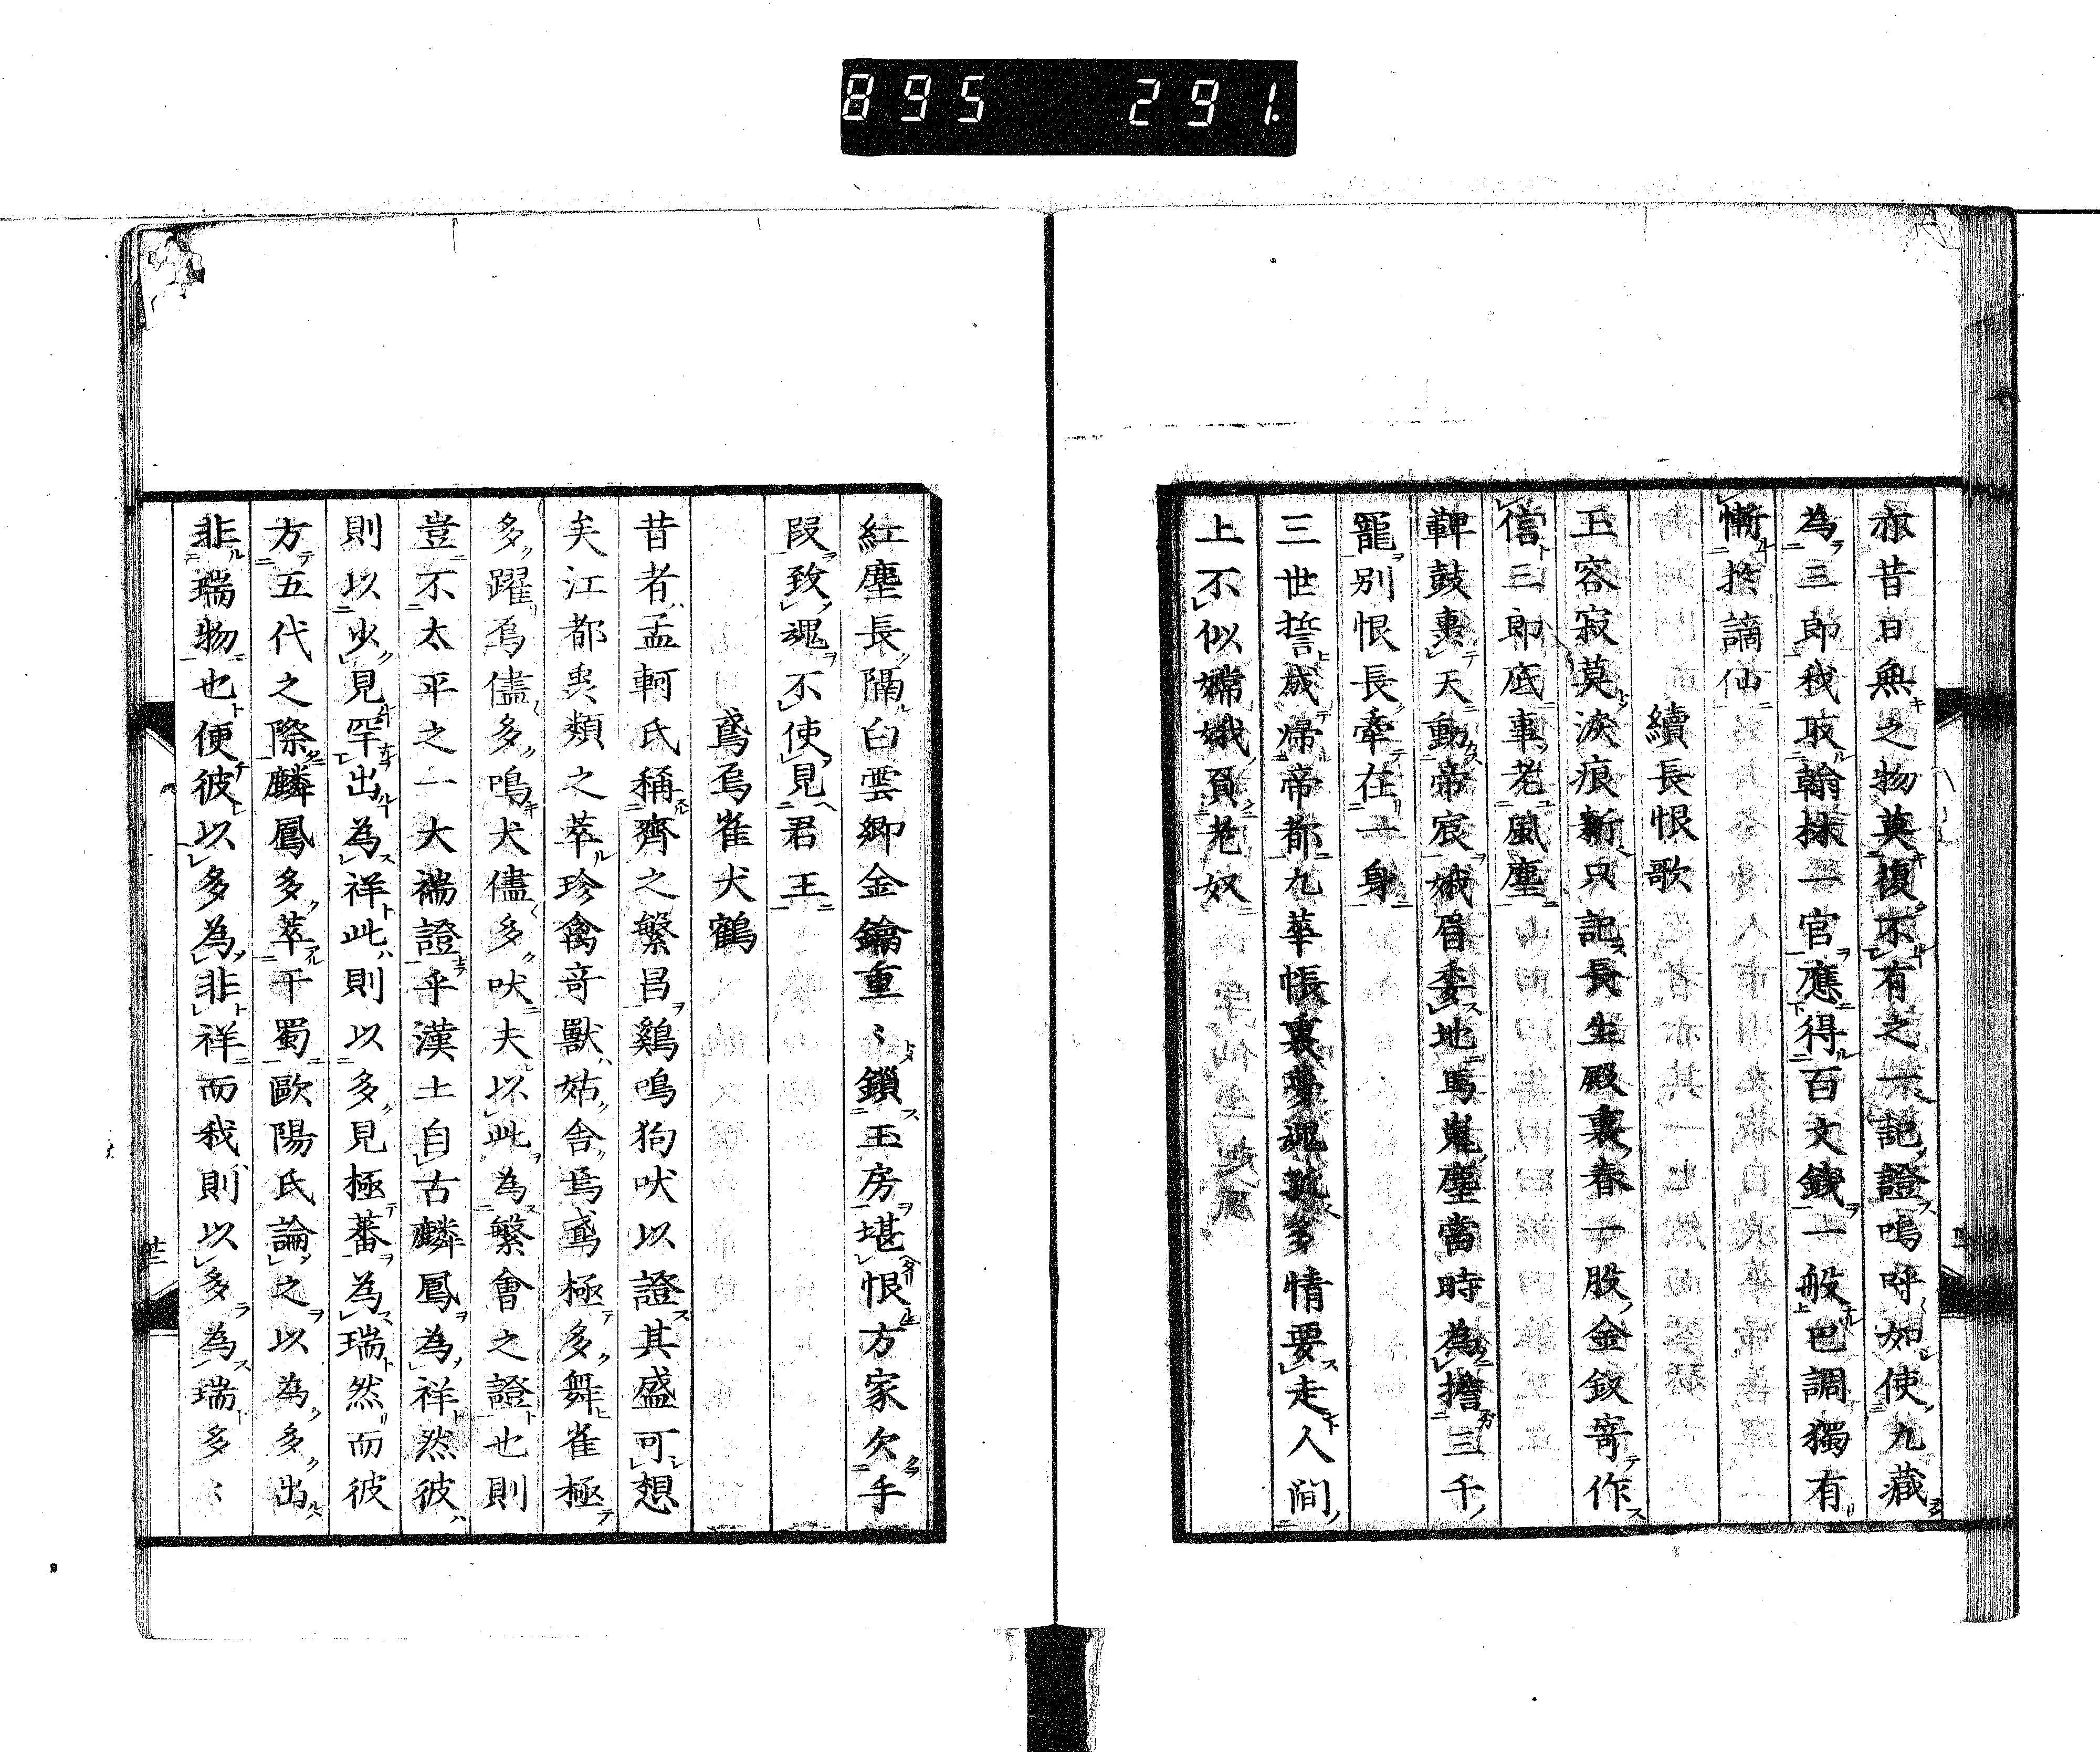 895 291.
亦昔日無之物莫復不有之一記證嗚呼如使九藏
為三郎我取翰林一官應得百文錢一般巴調獨有
慚於謫仙
續長恨歌
玉容寂莫淚痕新只記長生殿裏春一股金釵寄作
信三郎底事老風塵
鞞鼓裏天動帝宸娥眉委地馬嵬塵當時為擔三千
寵別恨長牽在一身
三世誓成歸帝都九華帳裏夢魂孤多情要走人間
上不似嫦娥負老奴
紅塵長隔白雲鄉金鑰重〻鎖玉房堪恨方家欠手
段致魂不使見君王
鳶烏雀犬鶴
昔者孟軻氏稱齊之繁昌鷄鳴狗吠以證其盛可想
矣江都喪類之萃珍禽奇獸姑舍焉鳶極多舞雀極
多躍烏儘多鳴犬儘多吠夫以此為繁會之證也則
豈不太平之一大端證乎漢土自古麟鳳為祥然彼
則以少見罕出為祥此則以多見極蕃為瑞然而彼
方五代之際麟鳳多萃干蜀歐陽氏論之以為多出
非瑞物也便彼以多為非祥而我則以多為瑞多〻